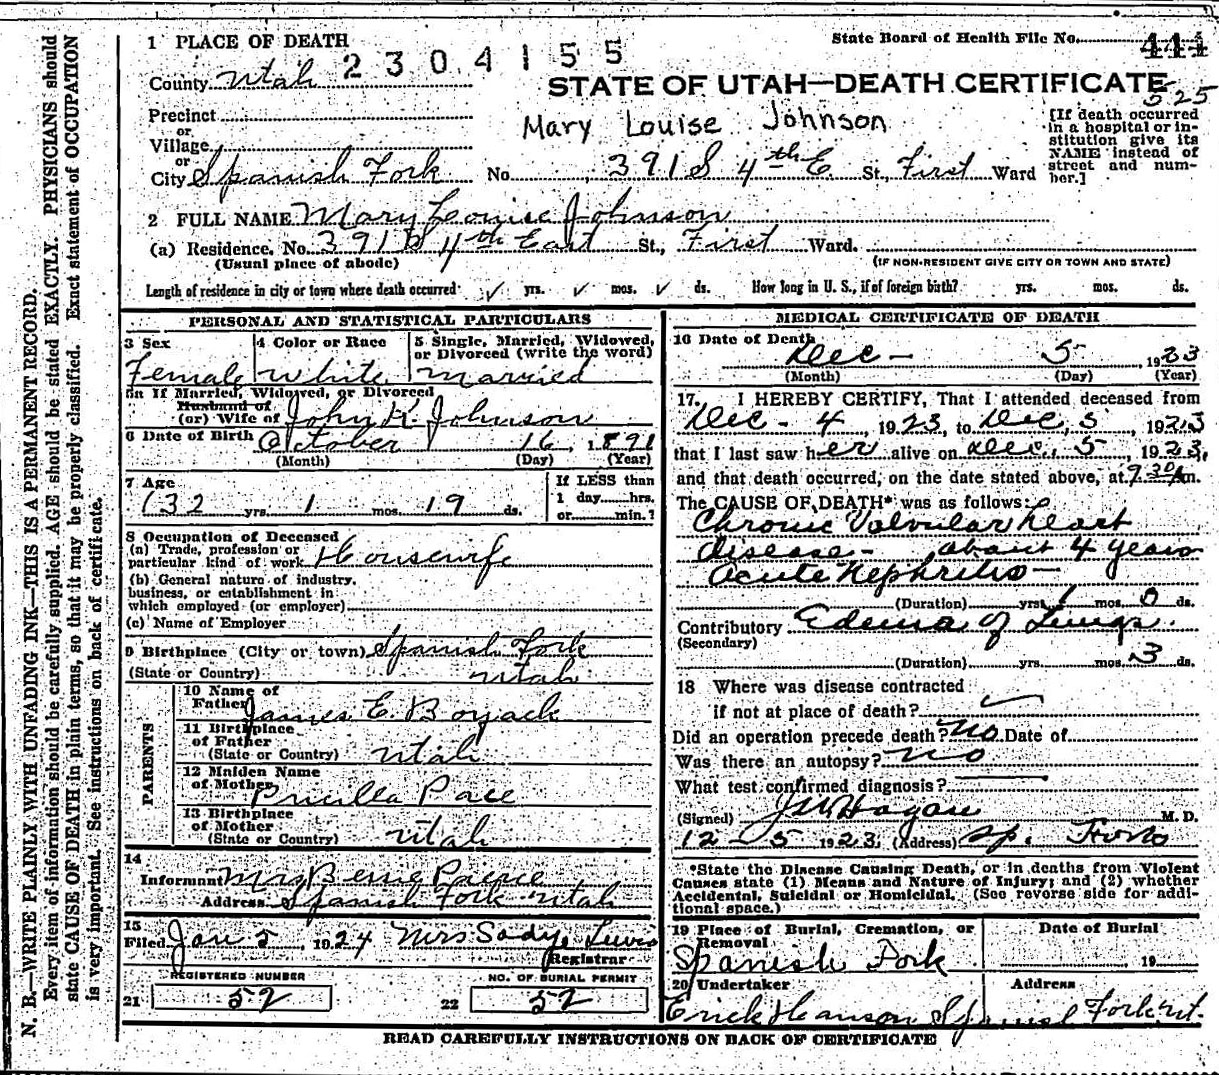 1 PLACE OF DEATH
State Board of Health File No. 444
County Utah 2304155
STATE OF UTAH—DEATH CERTIFICATE
525
Precinct
or
Village
or
Mary Louise Johnson
[If death occurred in a hospital or institution give its NAME instead of street and number.]
City Spanish Fork No. 391 S 4th E. St., First Ward
2 FULL NAME Mary Louise Johnson
(a) Residence. No. 391 S 4th East St., First Ward.
(Usual place of abode) (IF NON-RESIDENT GIVE CITY OR TOWN AND STATE)
Length of residence in city or town where death occurred ✓ yrs. ✓ mos. ✓ ds. How long in U. S., if of foreign birth? yrs. mos. ds.
PERSONAL AND STATISTICAL PARTICULARS
3 Sex 4 Color or Race 5 Single, Married, Widowed, or Divorced (write the word)
Female White Married
5a If Married, Widowed, or Divorced
Husband of
(or) Wife of John K. Johnson
6 Date of Birth October 16, 1891
(Month) (Day) (Year)
7 Age If LESS than
32 yrs. 1 mos. 19 ds. 1 day hrs.
or min.?
8 Occupation of Deceased
(a) Trade, profession or
particular kind of work Housewife
(b) General nature of industry,
business, or establishment in
which employed (or employer)
(c) Name of Employer
9 Birthplace (City or town) Spanish Fork
(State or Country) Utah
PARENTS
10 Name of
Father James E. Boyack
11 Birthplace
of Father
(State or Country) Utah
12 Maiden Name
of Mother Pricilla Pace
13 Birthplace
of Mother
(State or Country) Utah
14
Informant Mrs
Address Spanish Fork Utah
15
Filed Jan 5, 1924 Mrs Sadye Lewis
Registrar
REGISTERED NUMBER NO. OF BURIAL PERMIT
21 52 22 52
MEDICAL CERTIFICATE OF DEATH
16 Date of Death
Dec - 5 1923
(Month) (Day) (Year)
17. I HEREBY CERTIFY, That I attended deceased from
Dec - 4, 1923, to Dec, 5, 1923
that I last saw her alive on Dec., 5, 1923,
and that death occurred, on the date stated above, at 9.30 A m.
The CAUSE OF DEATH* was as follows:
Chronic Valvular heart
disease - about 4 years
Acute Nephritis —
(Duration) yrs. 1 mos. 0 ds.
Contributory Edema of Lungs.
(Secondary)
(Duration) yrs. mos. 3 ds.
18 Where was disease contracted
if not at place of death?
Did an operation precede death? No Date of
Was there an autopsy? No
What test confirmed diagnosis?
(Signed) J M Hagan M. D.
12 - 5 1923. (Address) Sp. Fork
*State the Disease Causing Death, or in deaths from Violent
Causes state (1) Means and Nature of Injury; and (2) whether
Accidental, Suicidal or Homicidal. (See reverse side for additional space.)
19 Place of Burial, Cremation, or Date of Burial
Removal
Spanish Fork 19
20 Undertaker Address
Erick Hanson Spanish Fork Ut.
READ CAREFULLY INSTRUCTIONS ON BACK OF CERTIFICATE
N. B.—WRITE PLAINLY WITH UNFADING INK—THIS IS A PERMANENT RECORD.
Every item of information should be carefully supplied. AGE should be stated EXACTLY. PHYSICIANS should
state CAUSE OF DEATH in plain terms, so that it may be properly classified. Exact statement of OCCUPATION
is very important. See instructions on back of certificate.